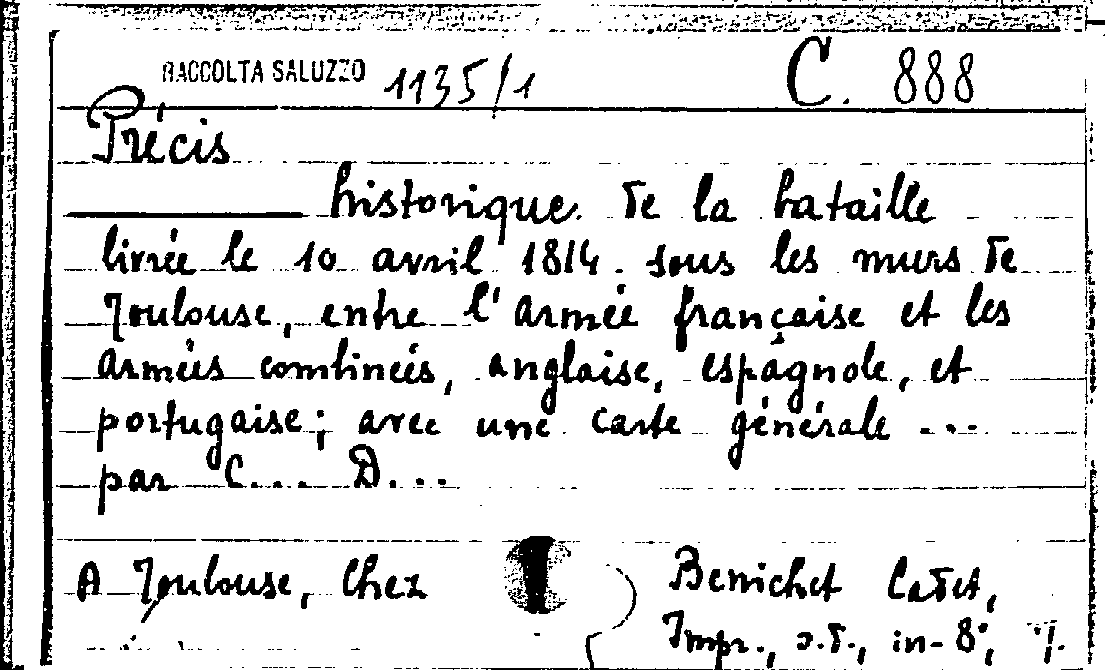 RACCOLTA SALUZZO 1135/1 C. 888
Précis
historique de la bataille
livrée le 10 avril 1814. sous les murs de
Toulouse, entre l'armée française et les
armées combinées, anglaise, espagnole, et
portugaise; avec une carte générale ...
par C... D...
A Toulouse, Chez Benichet Cadet,
Impr., s.d., in-8°,